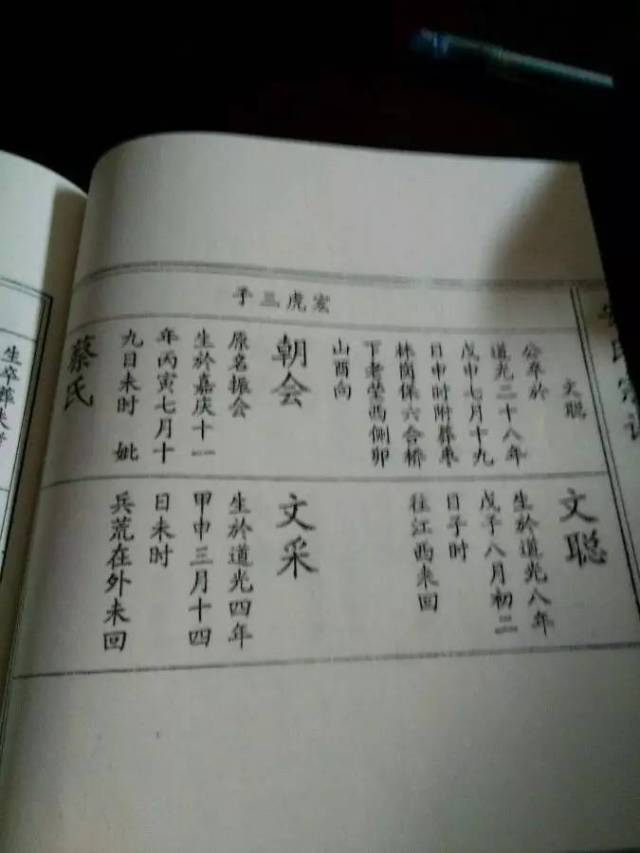 宏虎三子
文聪
公卒於
道光二十八年
戊申七月十九
日申时附葬枣
林岗保六合桥
下老茔西侧卯
山酉向
朝会
原名振会
生於嘉庆十一
年丙寅七月十
九日未时 妣
蔡氏
文聪
生於道光八年
戊子八月初二
日子时
往江西未回
文采
生於道光四年
甲申三月十四
日未时
兵荒在外未回
生卒葬失考